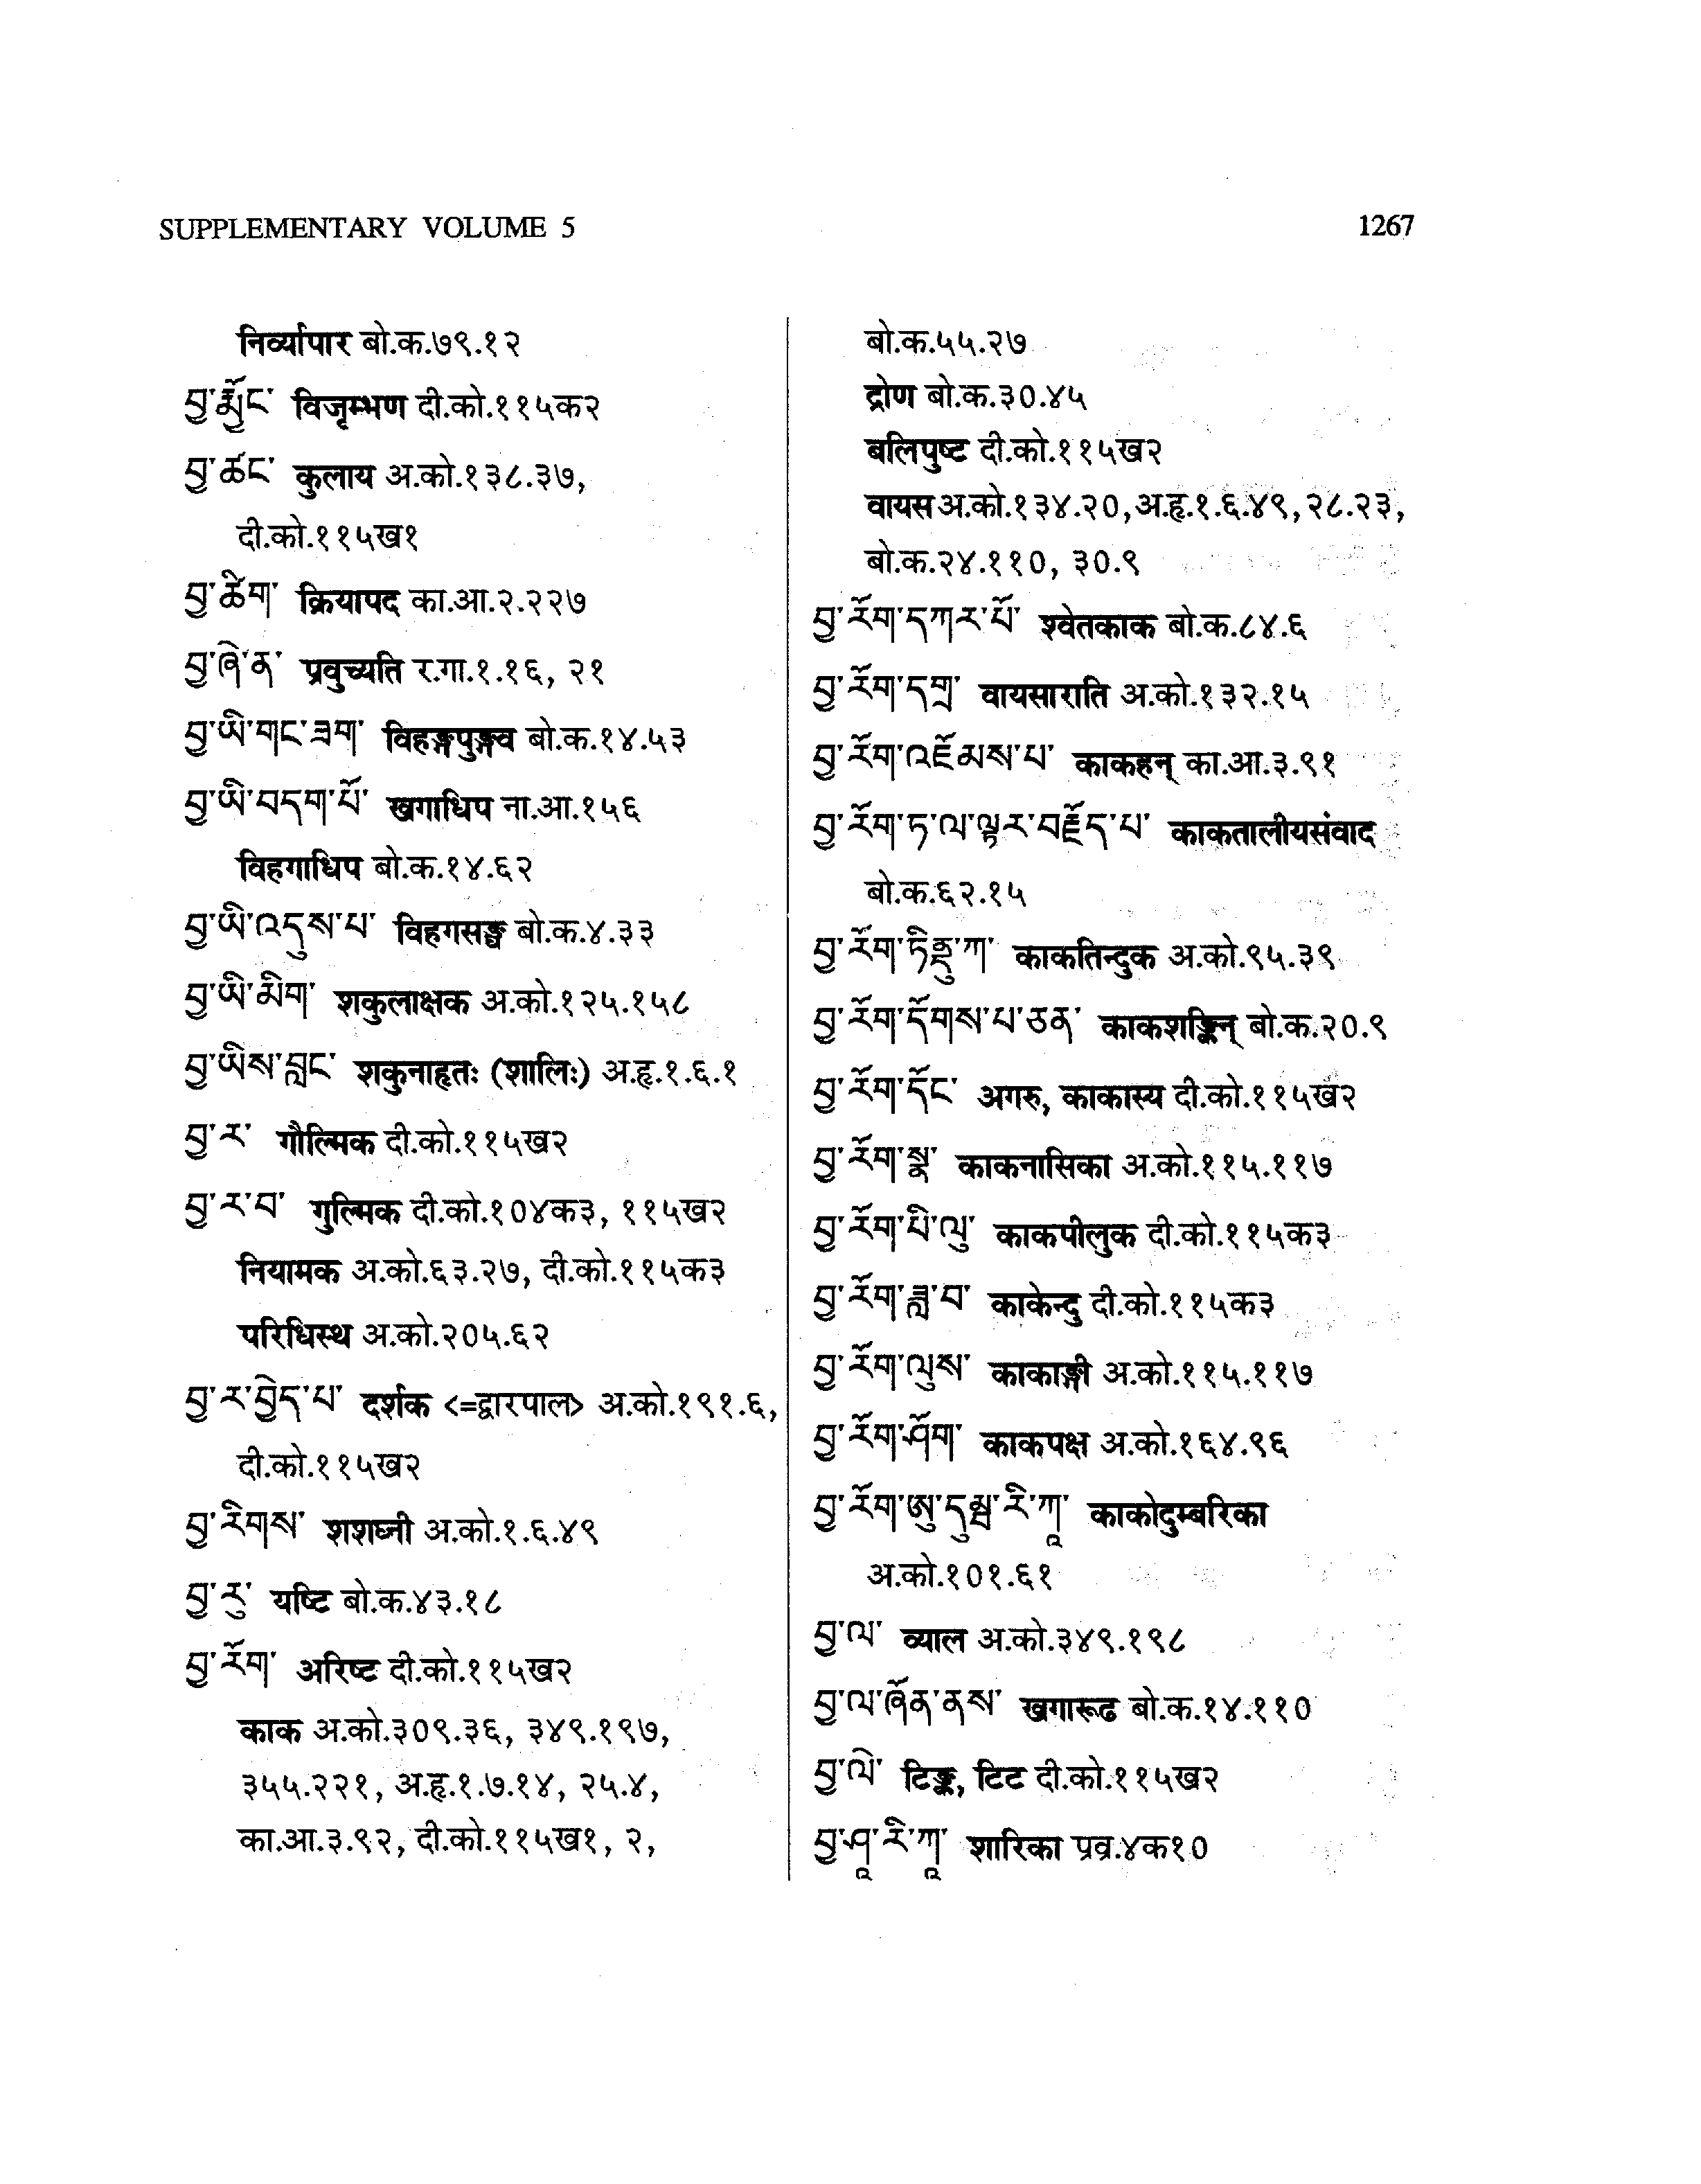 SUPPLEMENTARY VOLUME 5 1267
निर्व्यापार बो.क.७९.१२
བྱ་རྨྱོང་ विजृम्भण दी.को.११५क२
བྱ་ཚང་ कुलाय अ.को.१३८.३७,
दी.को.११५ख१
བྱ་ཚིག་ क्रियापद का.आ.२.२२७
བྱ་ཞེ་ན་ प्रवुच्यति र.गा.१.१६, २१
བྱ་ཡི་གང་ཟག་ विहङ्गपुङ्गव बो.क.१४.५३
བྱ་ཡི་བདག་པོ་ खगाधिप ना.आ.१५६
विहगाधिप बो.क.१४.६२
བྱ་ཡི་འདུས་པ་ विहगसङ्घ बो.क.४.३३
བྱ་ཡི་མིག་ शकुलाक्षक अ.को.१२५.१५८
བྱ་ཡིས་བླང་ शकुनाहृतः (शालिः) अ.हृ.१.६.१
བྱ་ར་ गौल्मिक दी.को.११५ख२
བྱ་ར་བ་ गुल्मिक दी.को.१०४क३, ११५ख२
नियामक अ.को.६३.२७, दी.को.११५क३
परिधिस्थ अ.को.२०५.६२
བྱ་ར་བྱེད་པ་ दर्शक <=द्वारपाल> अ.को.१९१.६,
दी.को.११५ख२
བྱ་རིགས་ शशघ्नी अ.को.१.६.४९
བྱ་རུ་ यष्टि बो.क.४३.१८
བྱ་རོག་ अरिष्ट दी.को.११५ख२
काक अ.को.३०९.३६, ३४९.१९७,
३५५.२२१, अ.हृ.१.७.१४, २५.४,
का.आ.३.९२, दी.को.११५ख१, २,
बो.क.५५.२७
द्रोण बो.क.३०.४५
बलिपुष्ट दी.को.११५ख२
वायस अ.को.१३४.२०,अ.हृ.१.६.४९,२८.२३,
बो.क.२४.११०, ३०.९
བྱ་རོག་དཀར་པོ་ श्वेतकाक बो.क.८४.६
བྱ་རོག་དགྲ་ वायसाराति अ.को.१३२.१५
བྱ་རོག་འཇོམས་པ་ काकहन् का.आ.३.९१
བྱ་རོག་ཏ་ལ་ལྟར་བརྗོད་པ་ काकतालीयसंवाद
बो.क.६२.१५
བྱ་རོག་ཏིནྡུ་ཀ་ काकतिन्दुक अ.को.९५.३९
བྱ་རོག་དོགས་པ་ཅན་ काकशङ्किन् बो.क.२०.९
བྱ་རོག་དོང་ अगरु, काकास्य दी.को.११५ख२
བྱ་རོག་སྣ་ काकनासिका अ.को.११५.११७
བྱ་རོག་པི་ལུ་ काकपीलुक दी.को.११५क३
བྱ་རོག་ཟླ་བ་ काकेन्दु दी.को.११५क३
བྱ་རོག་ལུས་ काकाङ्गी अ.को.११५.११७
བྱ་རོག་ཤོག་ काकपक्ष अ.को.१६४.९६
བྱ་རོག་ཨུ་དུམྦ་རི་ཀཱ་ काकोदुम्बरिका
अ.को.१०१.६१
བྱ་ལ་ व्याल अ.को.३४९.१९८
བྱ་ལ་ཞོན་ནས་ खगारूढ बो.क.१४.११०
བྱ་ལེ་ टिङ्क, टिट दी.को.११५ख२
བྱ་ཤཱ་རི་ཀཱ་ शारिका प्रव्र.४क१०